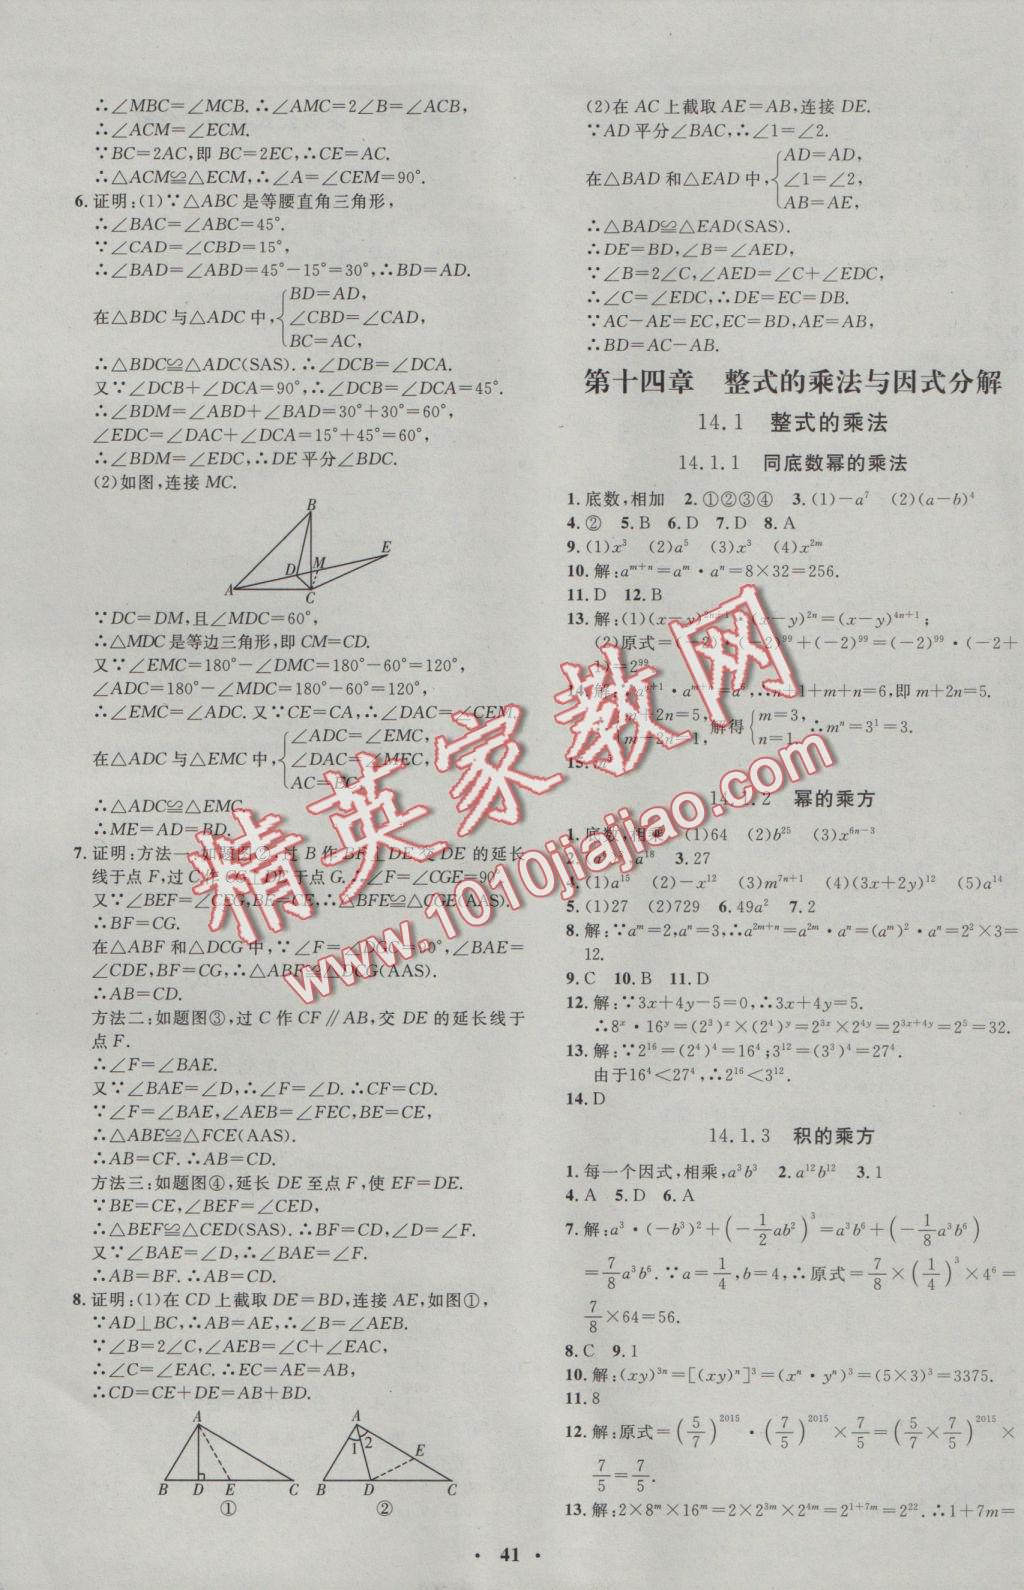 ∴∠MBC=∠MCB.∴∠AMC=2∠B=∠ACB,
∴∠ACM=∠ECM.
∵BC=2AC,即BC=2EC,∴CE=AC.
∴△ACM≌△ECM,∴∠A=∠CEM=90°.
6.证明:(1)∵△ABC是等腰直角三角形,
∴∠BAC=∠ABC=45°.
∵∠CAD=∠CBD=15°,
∴∠BAD=∠ABD=45°-15°=30°,∴BD=AD.
在△BDC与△ADC中,{BD=AD,
∠CBD=∠CAD,
BC=AC,
∴△BDC≌△ADC(SAS).∴∠DCB=∠DCA.
又∵∠DCB+∠DCA=90°,∴∠DCB=∠DCA=45°.
∴∠BDM=∠ABD+∠BAD=30°+30°=60°,
∠EDC=∠DAC+∠DCA=15°+45°=60°,
∴∠BDM=∠EDC,∴DE平分∠BDC.
(2)如图,连接MC.
B
E
D
M
A
C
∵DC=DM,且∠MDC=60°,
∴△MDC是等边三角形,即CM=CD.
又∵∠EMC=180°-∠DMC=180°-60°=120°,
∠ADC=180°-∠MDC=180°-60°=120°,
∴∠EMC=∠ADC.又∵CE=CA,∴∠DAC=∠CEM.
在△ADC与△EMC中,{∠ADC=∠EMC,
∠DAC=∠MEC,
AC=EC,
∴△ADC≌△EMC.
∴ME=AD=BD.
7.证明:方法一:如题图②,过B作BF⊥DE交DE的延长
线于点F,过C作CG⊥DE于点G.∴∠F=∠CGE=90°.
又∵∠BEF=∠CEG,BE=CE,∴△BFE≌△CGE(AAS).
∴BF=CG.
在△ABF和△DCG中,∵∠F=∠DGC=90°,∠BAE=
∠CDE,BF=CG,∴△ABF≌△DCG(AAS).
∴AB=CD.
方法二:如题图③,过C作CF∥AB,交DE的延长线于
点F.
∴∠F=∠BAE.
又∵∠BAE=∠D,∴∠F=∠D.∴CF=CD.
∵∠F=∠BAE,∠AEB=∠FEC,BE=CE,
∴△ABE≌△FCE(AAS).
∴AB=CF.∴AB=CD.
方法三:如题图④,延长DE至点F,使EF=DE.
∵BE=CE,∠BEF=∠CED,
∴△BEF≌△CED(SAS).∴BF=CD,∠D=∠F.
又∵∠BAE=∠D,∴∠BAE=∠F.
∴AB=BF.∴AB=CD.
8.证明:(1)在CD上截取DE=BD,连接AE,如图①,
∵AD⊥BC,∴AB=AE,∴∠B=∠AEB.
∵∠B=2∠C,∠AEB=∠C+∠EAC,
∴∠C=∠EAC.∴EC=AE=AB,
∴CD=CE+DE=AB+BD.
A
B D E C
①
A
1 2
E
B D C
②
(2)在AC上截取AE=AB,连接DE.
∵AD平分∠BAC,∴∠1=∠2.
在△BAD和△EAD中,{AD=AD,
∠1=∠2,
AB=AE,
∴△BAD≌△EAD(SAS).
∴DE=BD,∠B=∠AED,
∵∠B=2∠C,∠AED=∠C+∠EDC,
∴∠C=∠EDC,∴DE=EC=DB.
∵AC-AE=EC,EC=BD,AE=AB,
∴BD=AC-AB.
第十四章 整式的乘法与因式分解
14.1 整式的乘法
14.1.1 同底数幂的乘法
1.底数,相加 2.①②③④ 3.(1)-a⁷ (2)(a-b)⁴
4.② 5.B 6.D 7.D 8.A
9.(1)x³ (2)a⁵ (3)x³ (4)x²ᵐ
10.解:aᵐ⁺ⁿ=aᵐ·aⁿ=8×32=256.
11.D 12.B
13.解:(1)(x-y)²ⁿ⁺¹·(x-y)²ⁿ=(x-y)⁴ⁿ⁺¹;
(2)原式=(-2)·(-2)⁹⁹+(-2)⁹⁹=(-2)⁹⁹·(-2+
1)=2⁹⁹.
14.解:∵aⁿ⁺¹·aᵐ⁺ⁿ=a⁶,∴n+1+m+n=6,即m+2n=5.
{m+2n=5, m-2n=1, 解得{m=3, n=1, ∴mⁿ=3¹=3.
15.
14.1.2 幂的乘方
1.底数,相乘 (1)64 (2)b²⁵ (3)x⁶ⁿ⁻³
2. a¹⁸ 3.27
4.(1)a¹⁵ (2)-x¹² (3)m⁷ⁿ⁺¹ (4)(3x+2y)¹² (5)a¹⁴
5.(1)27 (2)729 6.49a² 7.2
8.解:∵aᵐ=2,aⁿ=3,∴a²ᵐ⁺ⁿ=a²ᵐ·aⁿ=(aᵐ)²·aⁿ=2²×3=
12.
9.C 10.B 11.D
12.解:∵3x+4y-5=0,∴3x+4y=5.
∴8ˣ·16ʸ=(2³)ˣ×(2⁴)ʸ=2³ˣ×2⁴ʸ=2³ˣ⁺⁴ʸ=2⁵=32.
13.解:∵2¹⁶=(2⁴)⁴=16⁴;3¹²=(3³)⁴=27⁴.
由于16⁴<27⁴,∴2¹⁶<3¹².
14.D
14.1.3 积的乘方
1.每一个因式,相乘,a³b³ 2.a¹²b¹² 3.1
4.A 5.D 6.A
7.解:a³·(-b³)²+(-1/2ab²)³=a³b⁶+(-1/8a³b⁶)
=7/8a³b⁶.∵a=1/4,b=4,∴原式=7/8×(1/4)³×4⁶=
7/8×64=56.
8.C 9.1
10.解:(xy)³ⁿ=[(xy)ⁿ]³=(xⁿ·yⁿ)³=(5×3)³=3375.
11.8
12.解:原式=(5/7)²⁰¹⁵·(7/5)²⁰¹⁵×7/5=(5/7×7/5)²⁰¹⁵×
7/5=7/5.
13.解:2×8ᵐ×16ᵐ=2×2³ᵐ×2⁴ᵐ=2¹⁺⁷ᵐ=2²².∴1+7m=
·41·
精英家教网
www.1010jiajiao.com